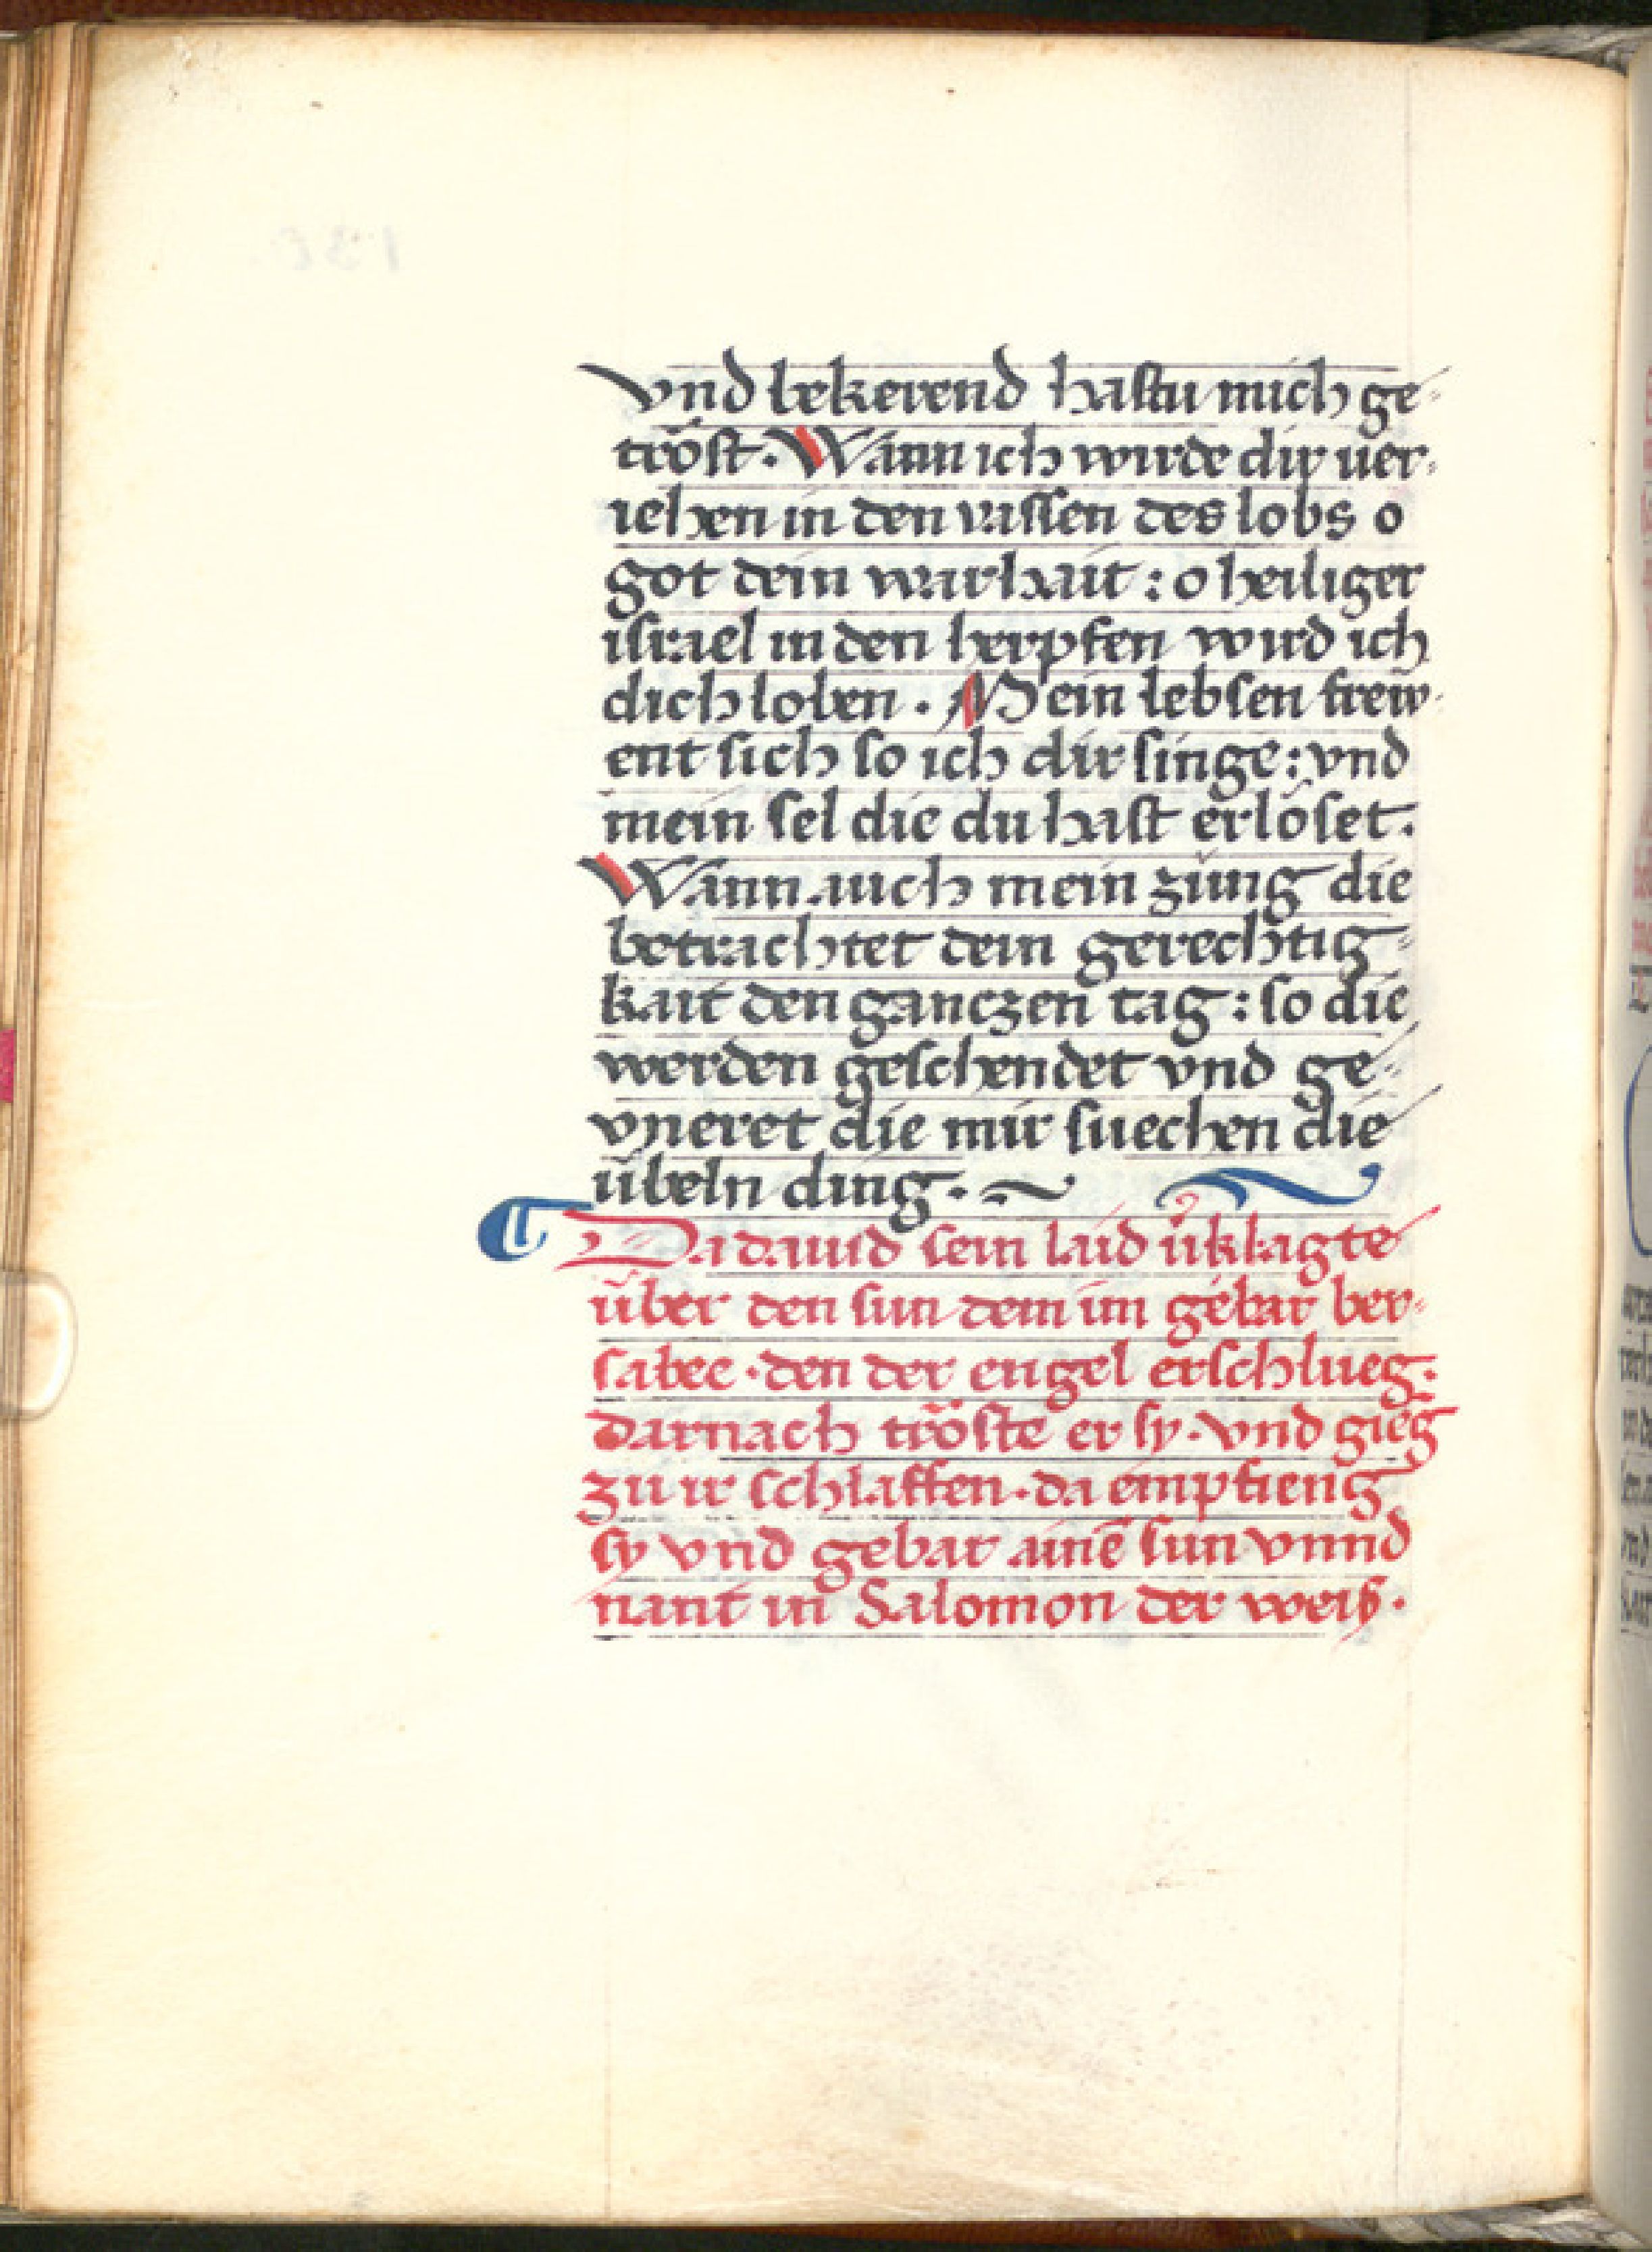 vnd bekerend hastu mich ge-
tröst. Wann ich wirde dir ver-
iehen in den vassen des lobs o
got dein warhait: o heiliger
israel in den herpfen wird ich
dich loben. Mein lebsen frew-
ent sich so ich dir singe: vnd
mein sel die du hast erlöset.
Wann auch mein züng die
betrachtet dein gerechtig-
kait den ganczen tag: so die
werden geschendet vnd ge-
vneret die mir suechen die
übeln ding.
Da dauid sein laid klagte
über den sun dem im gebar ber-
sabee. den der engel erschlueg.
darnach tröste er sy. vnd gieg
zu ir schlaffen. da empfieng
sy vnd gebar ainē sun vnnd
nant in Salomon der weis.